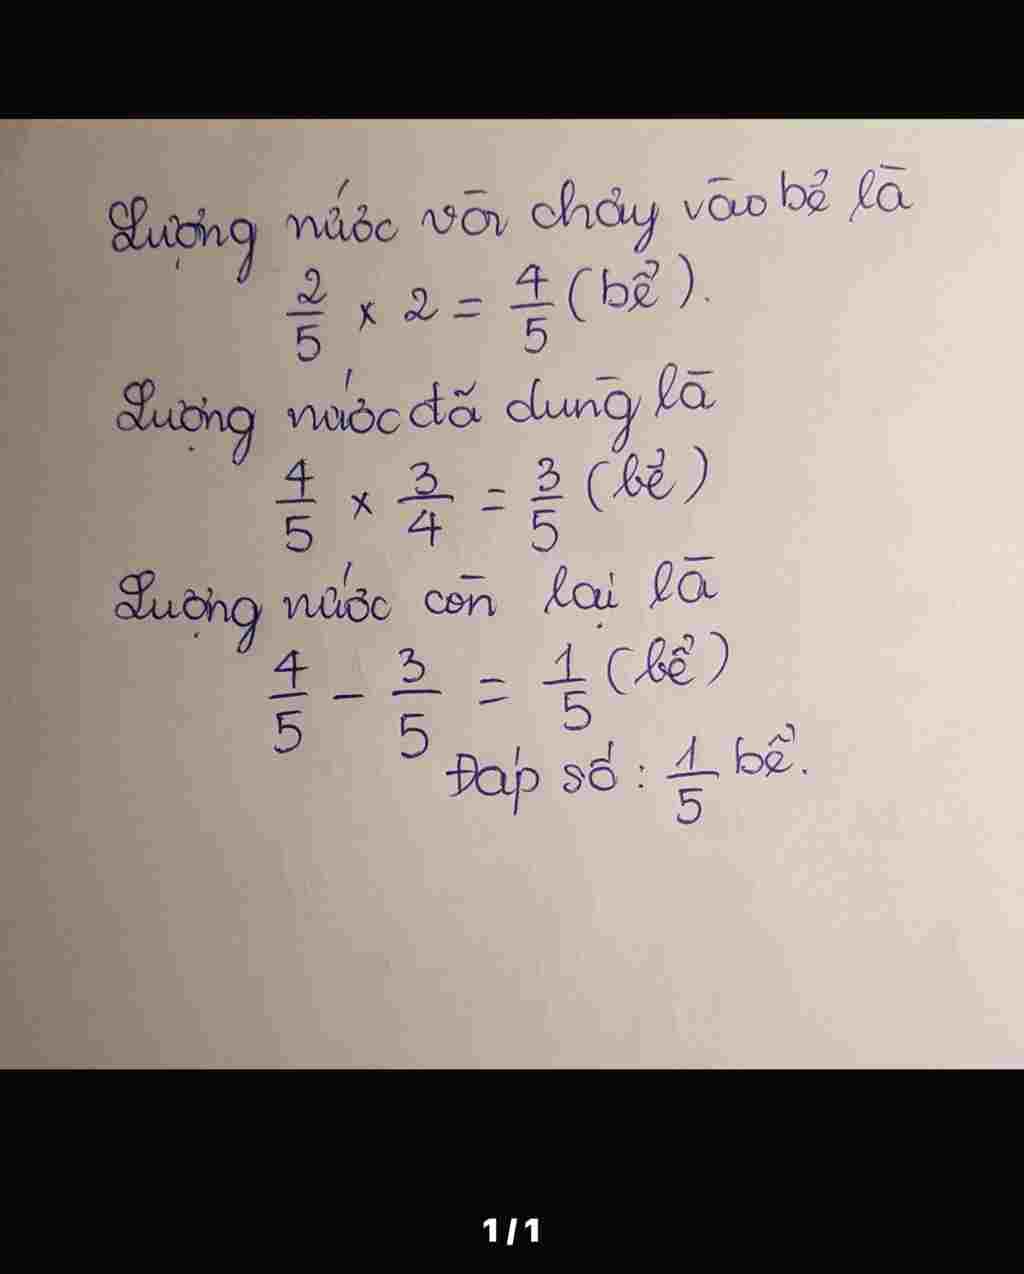 Lượng nước vòi chảy vào bể là
2/5 × 2 = 4/5 (bể).
Lượng nước đã dùng là
4/5 × 3/4 = 3/5 (bể)
Lượng nước còn lại là
4/5 - 3/5 = 1/5 (bể)
Đáp số : 1/5 bể.
1/1